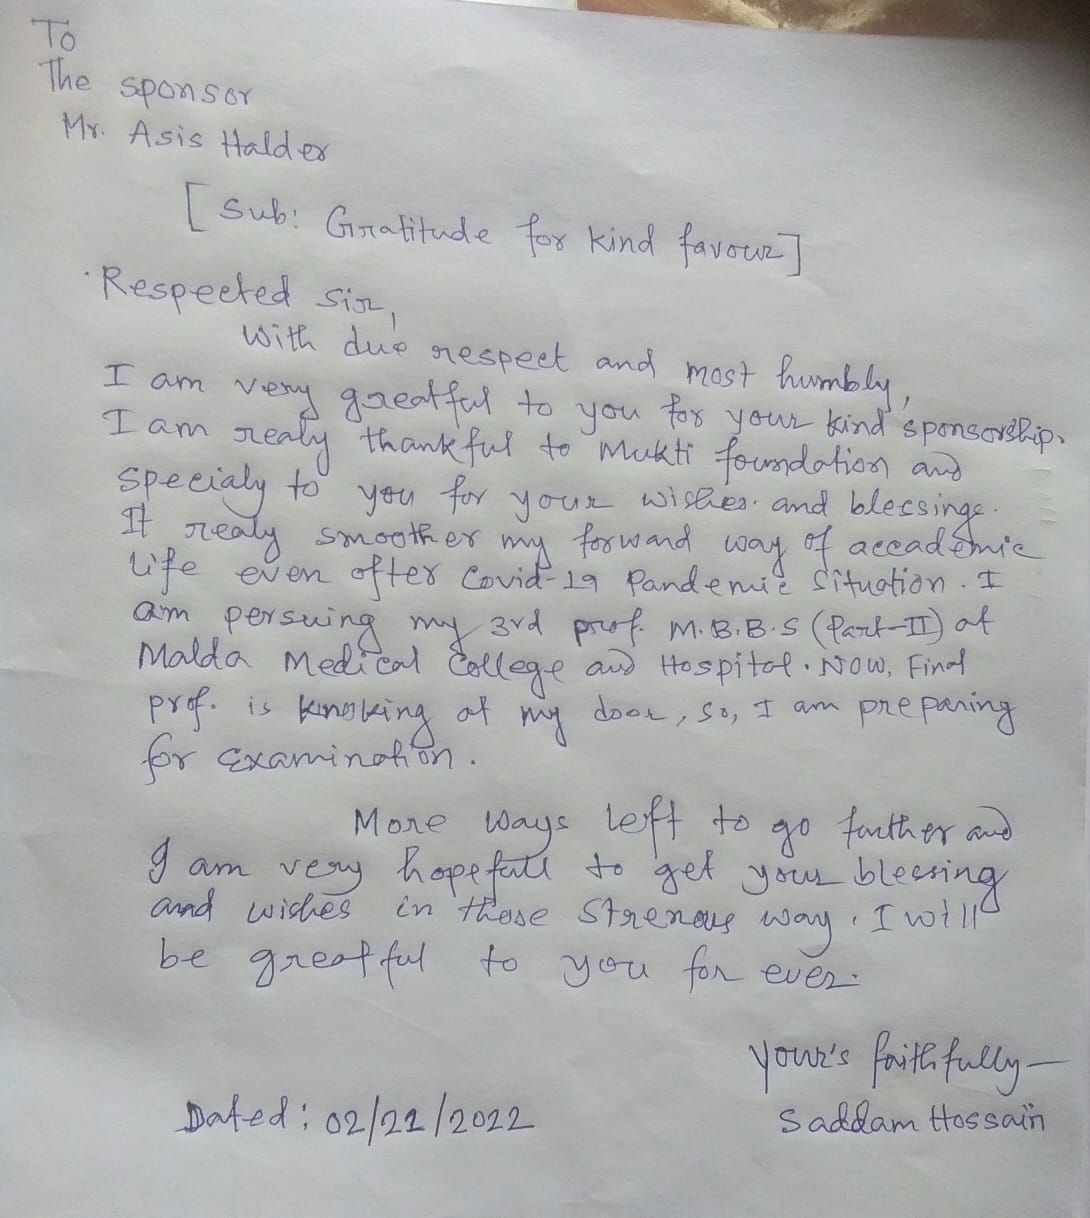 To
The sponsor
Mr. Asis Halder
[Sub: Gratitude for kind favour]
Respected Sir,
With due respect and most humbly,
I am very greatful to you for your kind sponsorship.
I am realy thankful to Mukti foundation and
specialy to you for your wishes. and blessings.
It realy smoother my forward way of accademic
life even after Covid-19 Pandemic situation. I
am persuing my 3rd prof. M.B.B.S (Part-II) at
Malda Medical College and Hospital. Now, Final
prof. is knoking at my door, so, I am preparing
for Examination.
More ways left to go further and
I am very hopefull to get your blessing
and wishes in these strenous way. I will
be greatful to you for ever.
Your's faithfully—
Saddam Hossain
Dated: 02/22/2022